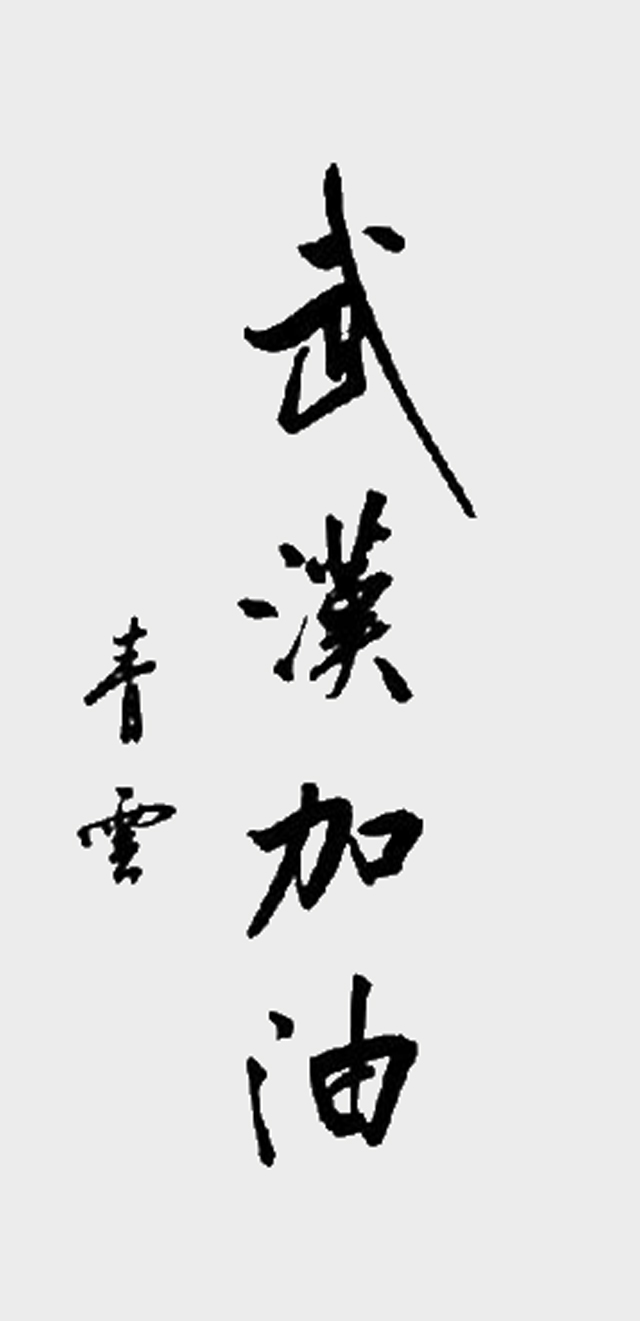 武漢加油
青雲